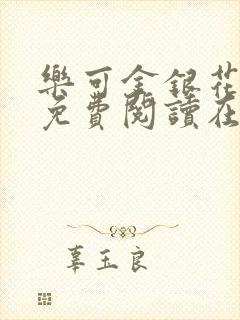 樂可金銀花
免費閱讀在
辜玉良